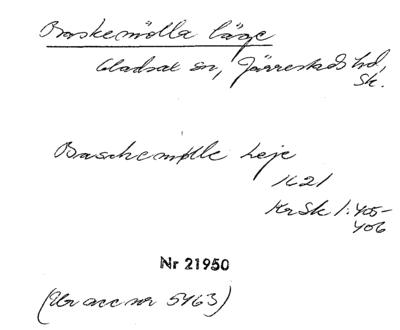 Baskemölla läge
Gladsax sn, Järrestads hd,
Sk.
Baschemølle Leje
1621
KrSk 1:405-
406
Nr 21950
(Ur acc nr 5463)